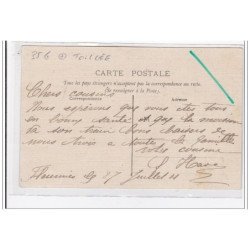 356 ① TOILEE
CARTE POSTALE
Tous les pays étrangers n'acceptent pas la correspondance au verso.
(Se renseigner à la Poste).
Correspondance Adresse
Chers cousins
Nous espérons que vous êtes tous
en bonne santé et que la moisson
va son train bons baisers de
nous trois a toute la famille
votre cousine
le 27 Juillet